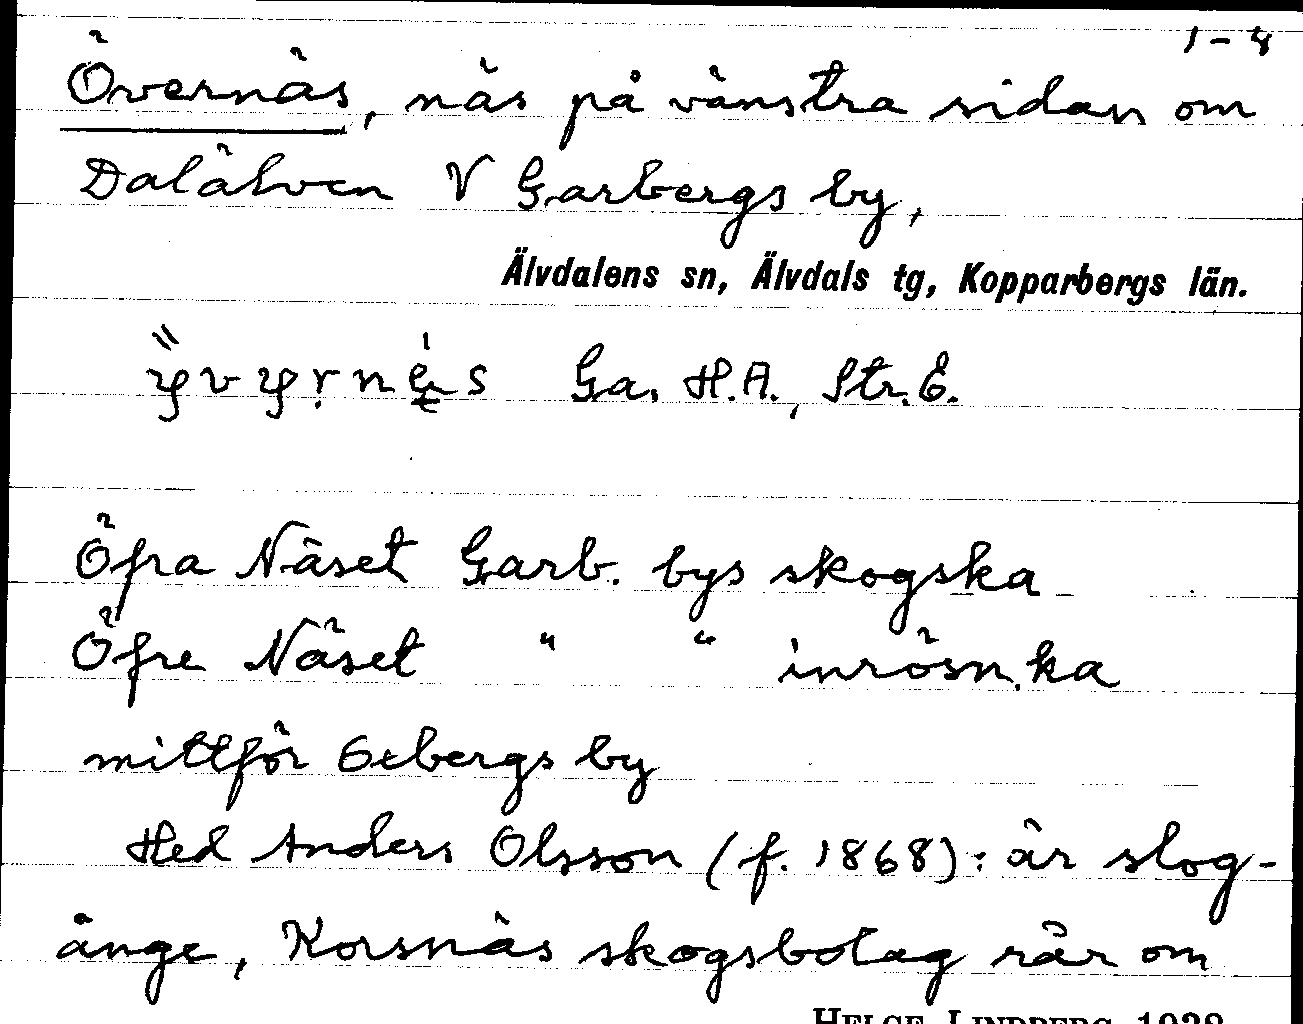 1-4
Övernäs, näs på vänstra sidan om
Dalälven V Garbergs by,
Älvdalens sn, Älvdals tg, Kopparbergs län.
Ga. H.A., Str.E.
Öfra Näset Garb. bys skogska
Öfre Näset " " inrösn.ka
mittför Gebergs by
Hed Anders Olsson (f. 1868): är slog-
änge, Korsnäs skogsbolag rår om
HELGE LINDBERG 1928